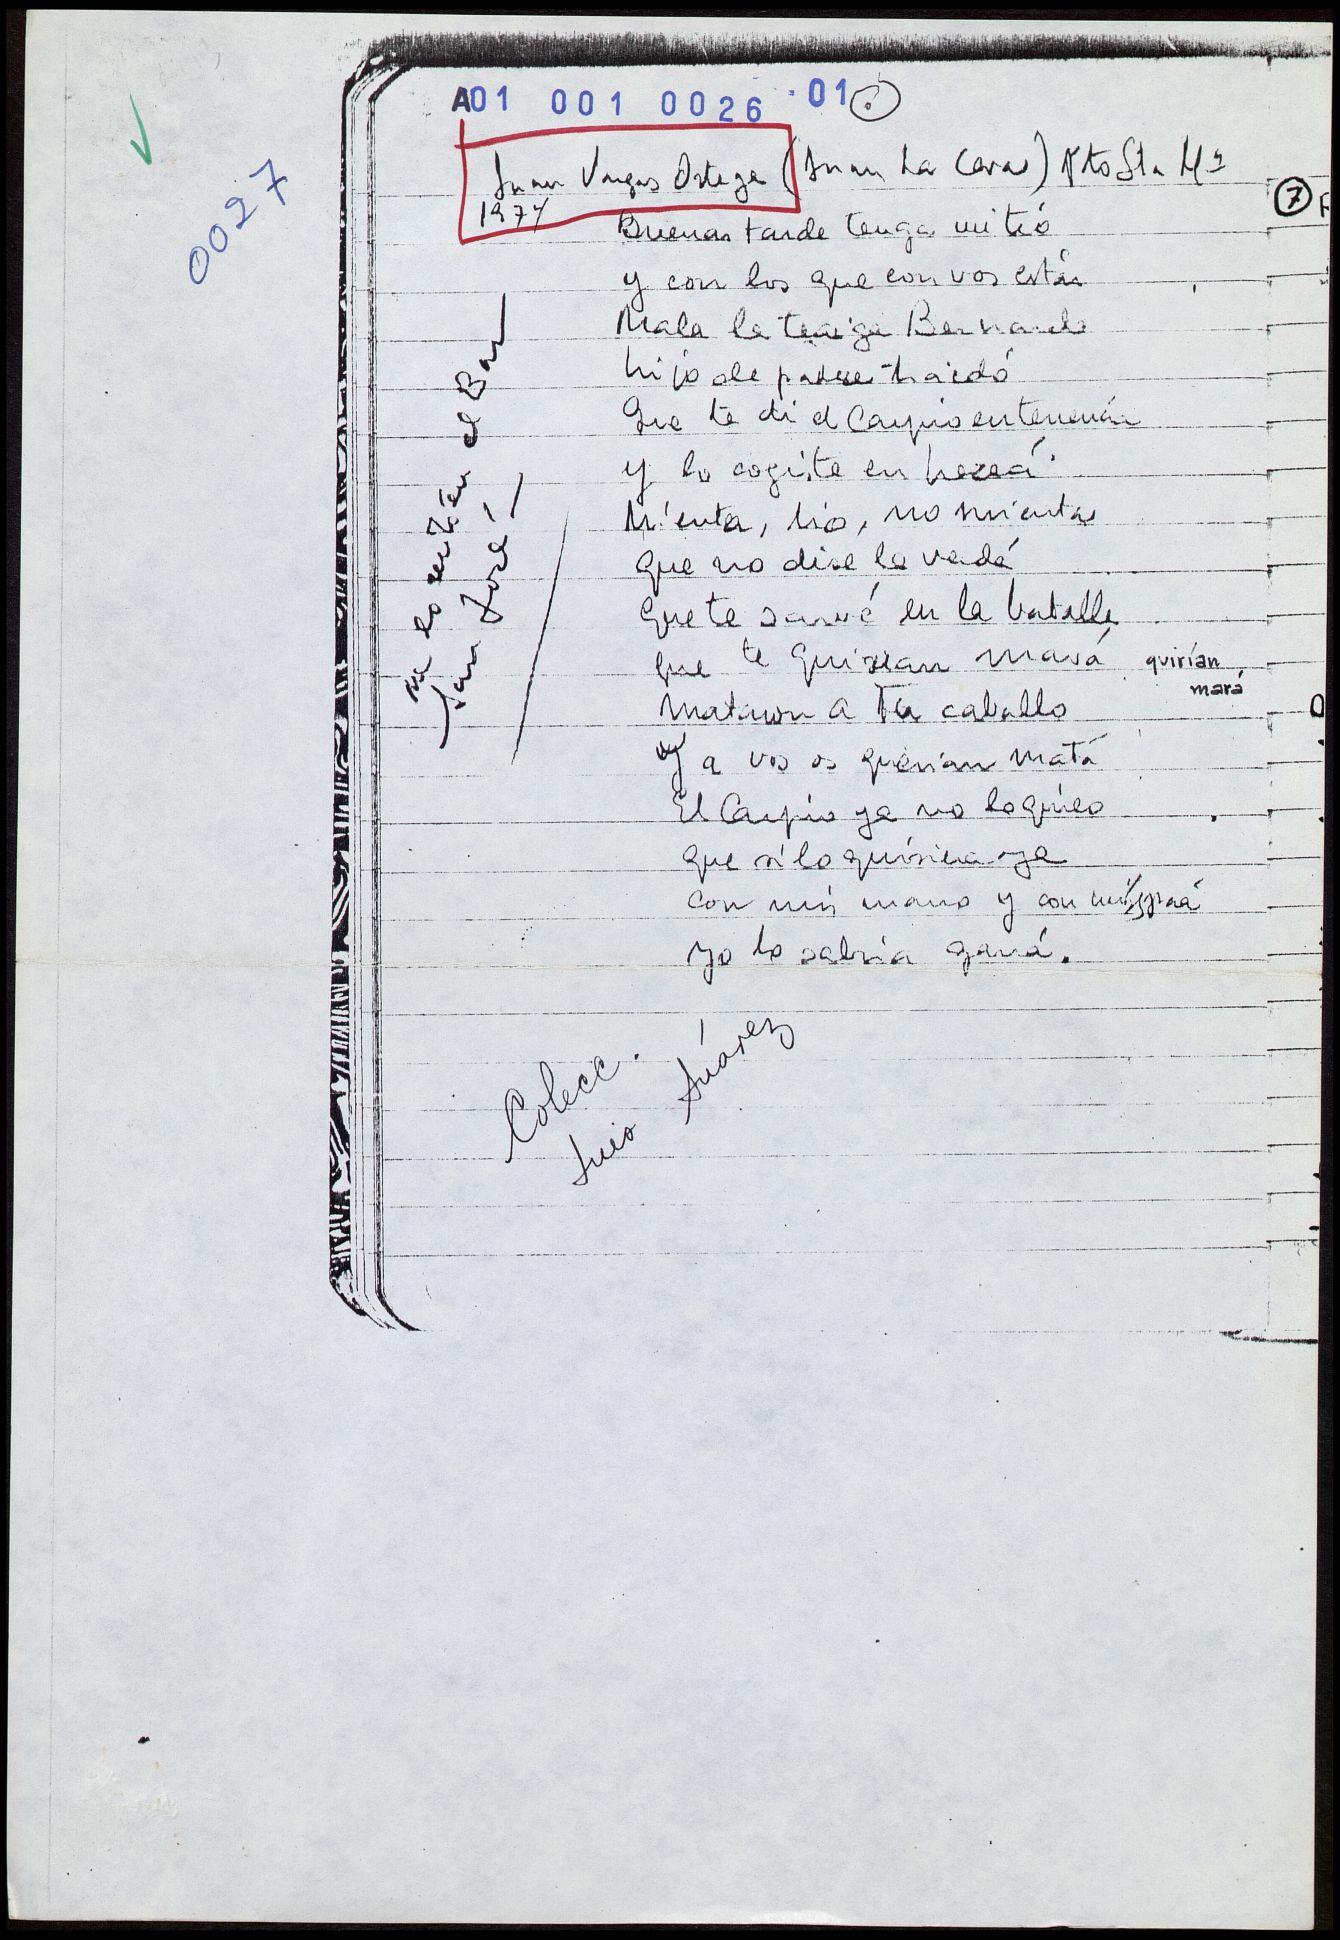 A01 001 0026 .01
0027
Juan Vargas Ortega (Juan La Caras) Pto Sta Mª
1974
7
Buenas tarde tenga mi tió
y con los que con vos están
Mala la traiga Bernardo
hijo de padre traidó
Que te di el Carpio en tenencia
y lo cogiste en
Mienta, tio, no mienta
que no dise la verdá
que te sarvé en la batalla
que te quirian mará quirían
mará
mataron a tu caballo
y a vos os querian matá
El Carpio ya no lo quieo
que si lo quisiera ya
con mis mano y con mi espaá
yo lo sabria ganá.
me lo en el Bar
San José
Colecc.
Luis Suárez